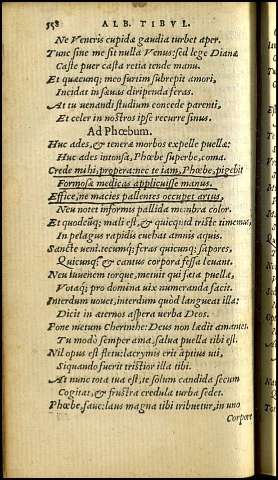 358 ALB. TIBVL.
Ne Veneris cupidæ gaudia turbet aper.
Tunc sine me sit nulla Venus: sed lege Dianæ
Caste puer casta retia tende manu.
Et quæcunq; meo furtim subrepit amori,
Incidat in sæuas diripienda feras.
At tu uenandi studium concede parenti,
Et celer in nostros ipse recurre sinus.
Ad Phœbum.
Huc ades, & tenera morbos expelle puellæ:
Huc ades intonsa, Phœbe superbe, coma.
Crede mihi, propera: nec te iam, Phœbe, pigebit
Formosæ medicas applicuisse manus.
Effice, ne macies pallentes occupet artus,
Neu notet informis pallida membra color.
Et quodcũq; mali est, & quicquid triste timemus,
In pelagus rapidis euehat amnis aquis.
Sancte ueni. tecumq; feras quicunq; sapores,
Quicunq; & cantus corpora fessa leuant.
Neu iuuenem torque, metuit qui fata puellæ,
Votaq; pro domina uix numeranda facit.
Interdum uouet, interdum quòd langueat illa:
Dicit in æternos aspera uerba Deos.
Pone metum Cherinthe: Deus non lædit amantes.
Tu modò semper ama, salua puella tibi est.
Nil opus est fletu: lacrymis erit aptius uti,
Siquando fuerit tristior illa tibi.
At nunc tota tua est, te solum candida secum
Cogitat, & frustra credula turba sedet.
Phœbe, faue: laus magna tibi tribuetur, in uno
Corpore